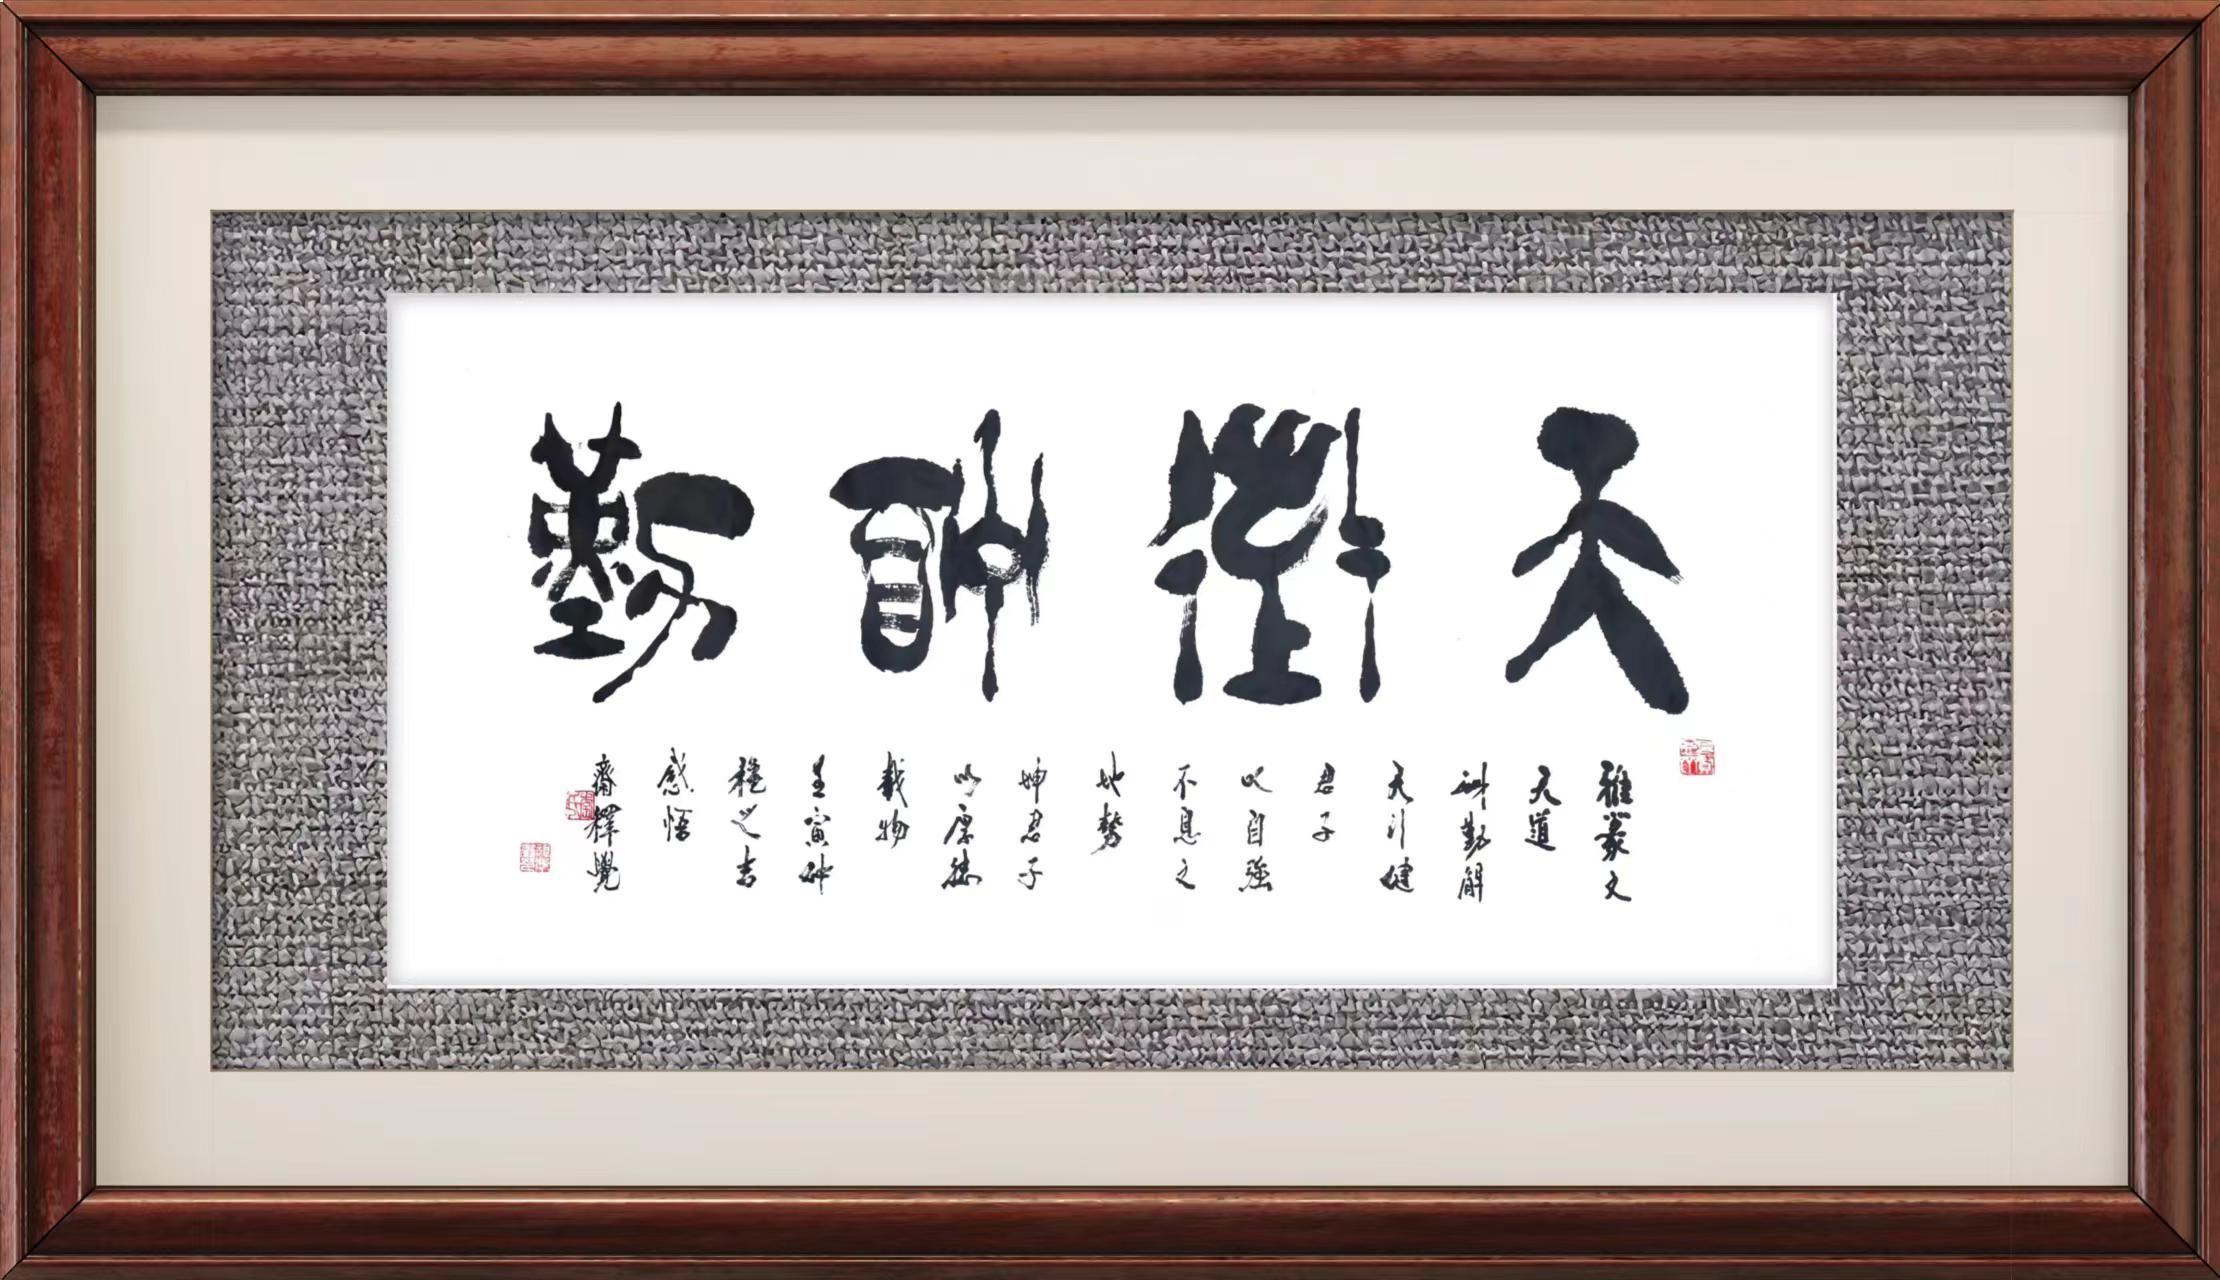 天道酬勤
雅篆文
天道
酬勤解
天行健
君子
以自強
不息之
地勢
坤君子
以厚德
載物
壬寅仲
之吉
感悟
齋釋覺